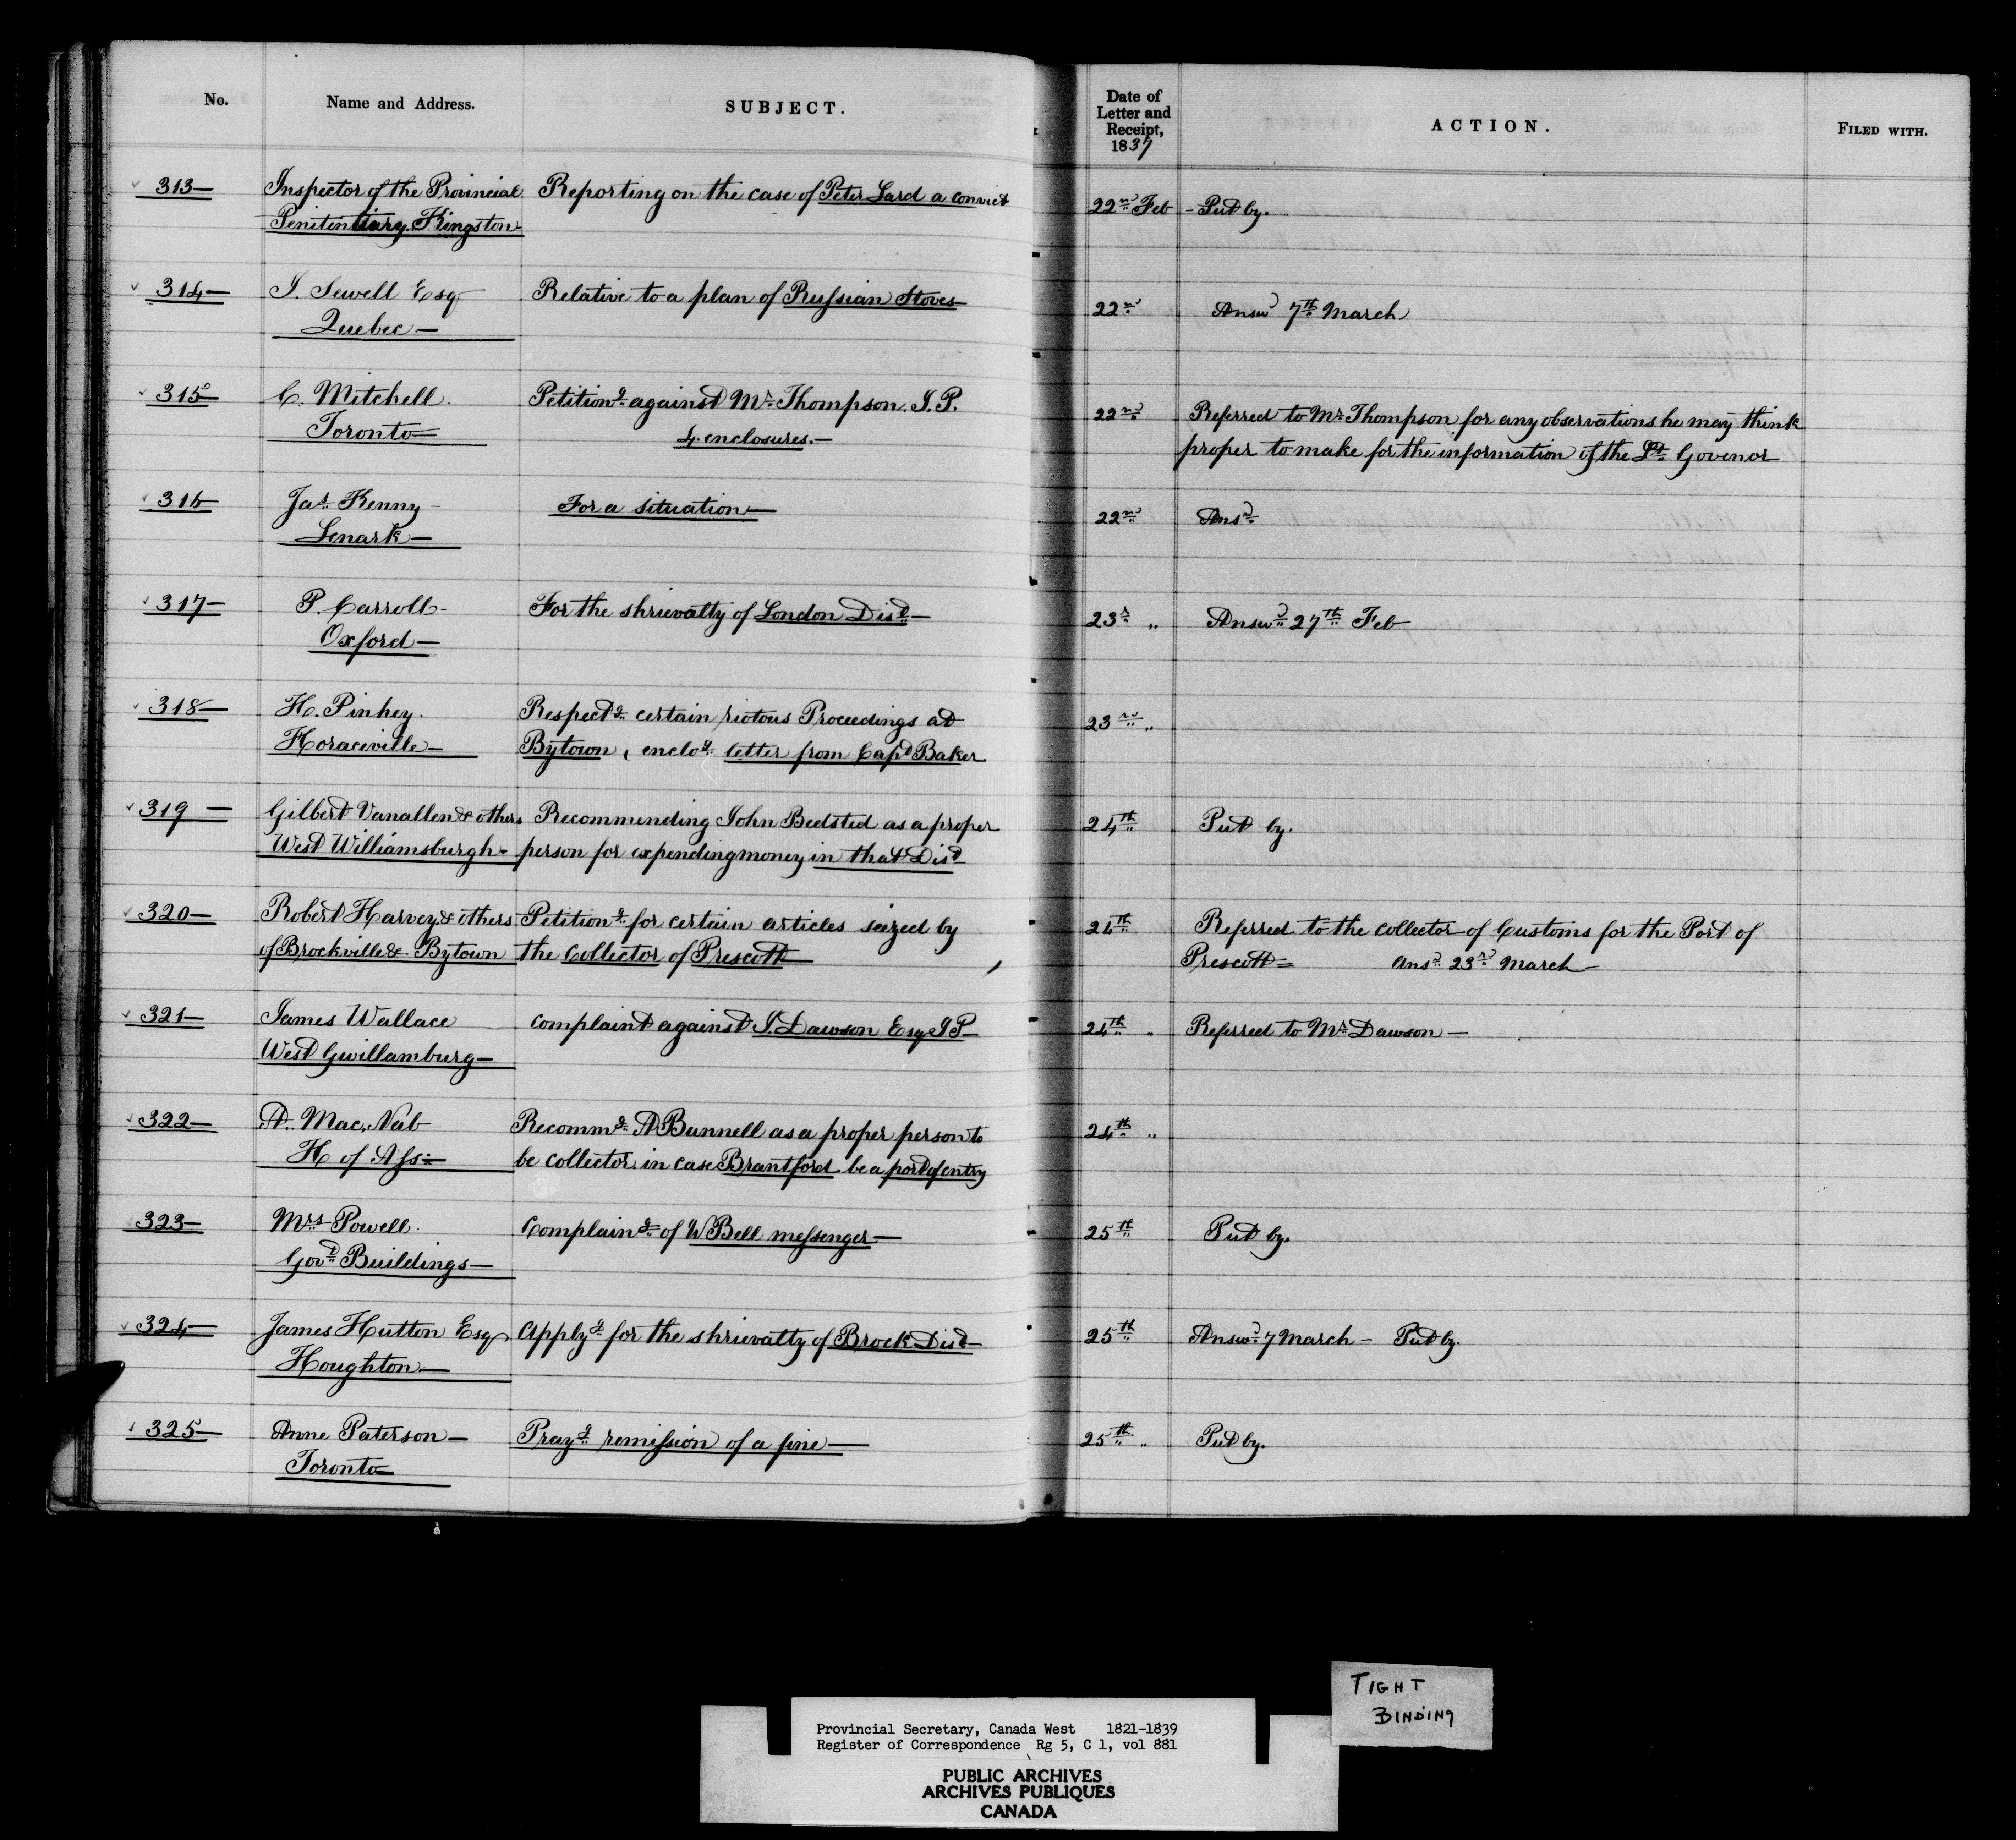 No. Name and Address. SUBJECT. Date of Letter and Receipt, 1837 ACTION. FILED WITH.
313— Inspector of the Provincial Reporting on the case of Peter Lard a convict 22nd Feb - Put by.
Penitentiary. Kingston
314— J. Sewell Esq Relative to a plan of Russian Stoves— 22nd Answd 7th March
Quebec—
315— C. Mitchell. Petitiong against Mr Thompson. J.P. 22nd Referred to Mr Thompson for any observations he may think
Toronto— 4 enclosures.— proper to make for the information of the Lt Govenor
316 Jas Kenny - For a situation— 22nd Ansd
Lenark—
317— P. Carroll- For the shrievalty of London Dist— 23d " Answd 27th Feb
Oxford—
318— H. Pinhey. Respectg certain riotous Proceedings at 23rd "
Horaceville— Bytown, enclog letter from Capt Baker
319 — Gilbert Vanallen & others Recommending John Bedsted as a proper 24th Put by.
West Williamsburgh- person for expending money in that Dist
320— Robert Harvey & others Petitiong for certain articles seized by 24th Referred to the collector of Customs for the Port of
of Brockville & Bytown the Collector of Prescott— Prescott= Ansd 23rd March—
321— James Wallace complaint against J. Dawson Esq JP— 24th " Referred to Mr Dawson—
West Gwillamburg—
322— A. Mac.Nab Recommg A Bunnell as a proper person to 24th "
H of Ass= be collector in case Brantford be a port of entry
323— Mrs Powell. Complaing of W Bell messenger— 25th Put by.
Govt Buildings—
324— James Hutton Esq. Applyg for the shrievalty of Brock Dist— 25th Answd 7 March— Put by.
Houghton—
325— Anne Paterson— Prayg remission of a fine— 25th " Put by.
Toronto—
TIGHT
BINDING
Provincial Secretary, Canada West 1821-1839
Register of Correspondence Rg 5, C 1, vol 881
PUBLIC ARCHIVES
ARCHIVES PUBLIQUES
CANADA